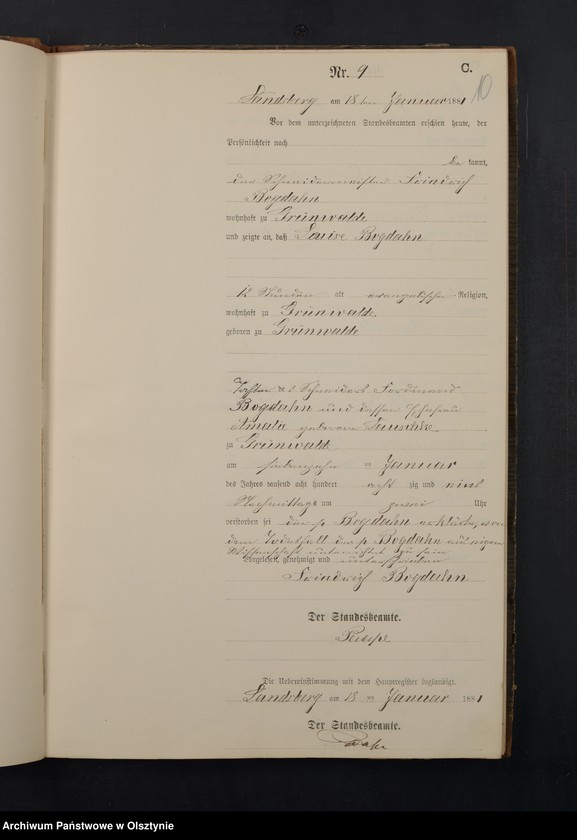 Nr. 9
C.
10
Landsberg am 18 ten Januar 1881
Vor dem unterzeichneten Standesbeamten erschien heute, der
Persönlichkeit nach
be kannt,
der Schneidermeister Friedrich
Bogdahn
wohnhaft zu Grünwalde
und zeigte an, daß Louise Bogdahn
12 Stunden alt evangelischer Religion,
wohnhaft zu Grünwalde
geboren zu Grünwalde
Tochter des Schneiders Ferdinand
Bogdahn und dessen Ehefrau
Amalie geborene
zu Grünwalde
am siebenzehn ten Januar
des Jahres tausend acht hundert acht zig und eins
Nachmittags um zwei Uhr
verstorben sei der p Bogdahn erklärte,
dem Todesfall der p Bogdahn aus eigener
Wissenschaft unterrichtet zu sein
Vorgelesen, genehmigt und unterschrieben
Friedrich Bogdahn
Der Standesbeamte.
Die Uebereinstimmung mit dem Hauptregister beglaubigt.
Landsberg am 18 ten Januar 1881
Der Standesbeamte.
Archiwum Państwowe w Olsztynie